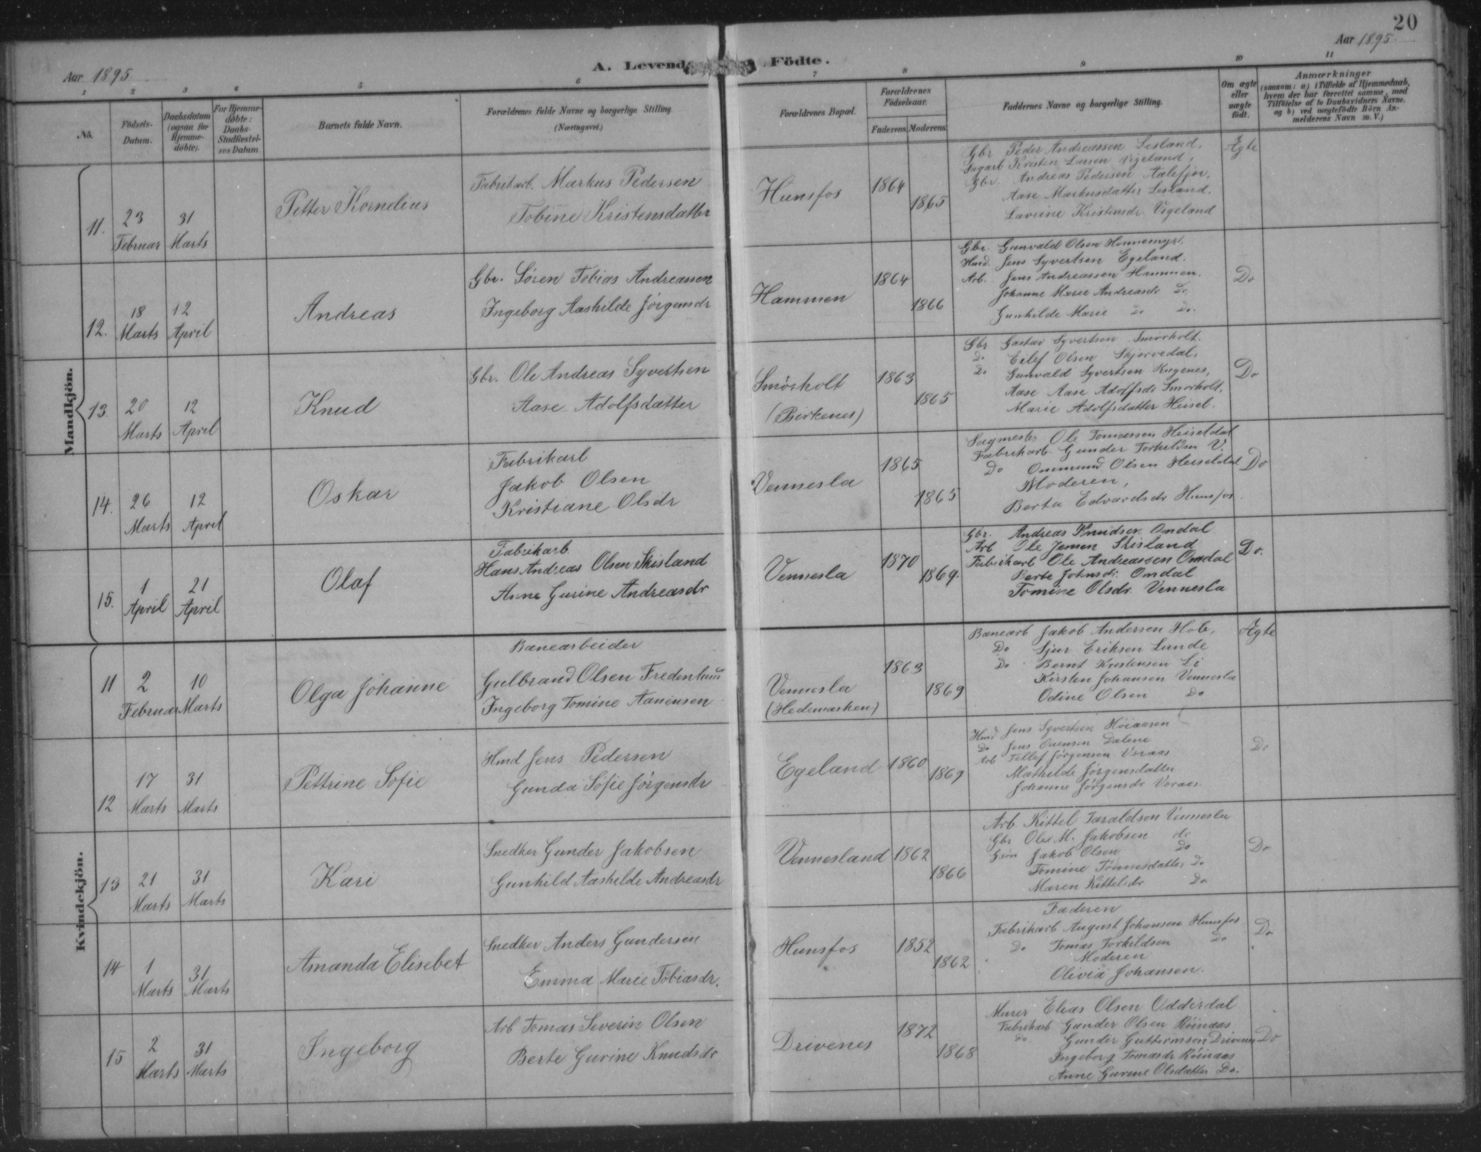 20
Aar 1895
Aar 1895
A. Levende Födte.
1 2 3 4 5 6 7 8 9 10 11
No.
Födsels-Datum.
Daabsdatum (ogsaa for Hjemme-döbte).
For Hjemme-döbte: Daabs-Stadfæstel-ses Datum
Barnets fulde Navn.
Forældrenes fulde Navne og borgerlige Stilling. (Næringsvei)
Forældrenes Bopæl.
Forældrenes Födselsaar.
Faderens Moderens
Faddernes Navne og borgerlige Stilling.
Om ægte eller uægte födt.
Anmærkninger
(saasom: a) i Tilfælde af Hjemmedaab, hvem der har forrettet samme, med Tilföielse af to Daabsvidners Navne, og b) ved uegtefödte Börn An-melderens Navn m. V.)
Mandkjön.
11. 23 Februar
31 Marts
Petter Kornelius
Fabrikarb. Markus Pedersen
Tobine Kristensdatter
Hunsfos
1864
1865
Gbr Peder Andreassen Lesland,
Kristen Larsen Vigeland,
Gbr Andreas Pedersen
Aase Markusdatter Lesland.
Lavrine Kristensdr. Vigeland
Ægte
12. 18 Marts
12 April
Andreas
Gbr. Søren Tobias Andreassen
Ingeborg Aashilde Jörgensdr
Hammen
1864
1866
Gbr. Gunvald Olsen
Jens Syvertsen Egeland.
Arb. Jens Andreassen Hammen.
Johanne Marie Andreasdr Do.
Gunhilde Marie Do Do.
Do
13. 20 Marts
12 April
Knud
Gbr. Ole Andreas Syvertsen
Aase Adolfsdatter
Smörholt
(Berkenes)
1863
1865
Gbr Gustav Syvertsen Smörholt.
Do Eilef Olsen
Do Gunvald Syvertsen
Aase Aase Adolfsdr Smörholt,
Marie Adolfsdatter Heisel.
Do
14. 26 Marts
12 April
Oskar
Fabrikarb
Jakob Olsen
Kristiane Olsdr
Vennesla
1865
1865
Sagmester Ole Tomassen Heiseldal
Fabrikarb. Gunder Torkildsen V.
Do Ommund Olsen Heiseldal
Moderen,
Berta Edvardsdr Hunsfos.
Do
15. 1 April
21 April
Olaf
Fabrikarb
Hans Andreas Olsen Skisland
Anne Gurine Andreasdr
Vennesla
1870
1869.
Gbr. Andreas Knudsen Omdal
Arb Ole Jensen Skisland
Fabrikarb Ole Andreassen Omdal
Berte Johnsdr. Omdal
Tomine Olsdr. Vennesla
Do.
Kvindekjön.
11 2 Februar
10 Marts
Olga Johanne
Banearbeider
Gulbrand Olsen Fredenlund
Ingeborg Tomine Aanensen
Vennesla
(Hedemarken)
1863
1869
Banearb Jakob Andersen Hole,
Do Sjur Eriksen Lunde
Do Bernt Kristensen Li
Kirsten Johansen Vennesla
Odine Olsen Do
Ægte
12 17 Marts
31 Marts
Pettrine Sofie
Hmd Jens Pedersen
Gunda Sofie Jörgensdr
Egeland
1860
1869
Hmd Jens Syvertsen
Do Jens
Arb Tellef Jörgensen Voraas
Mathilde Jörgensdatter
Johanne Jörgensdr Voraas.
Do
13 21 Marts
31 Marts
Kari
Snedker Gunder Jakobsen
Gunhild Aashilde Andreasdr
Vennesland
1862
1866
Arb Kittel Taraldsen Vennesla
Gbr Ole M. Jakobsen do
Jakob Olsen Do
Tomine Tönnesdatter, Do
Maren Kittelsdr Do
Do
14 1 Marts
31 Marts
Amanda Elisebet
Snedker Anders Gundersen
Emma Marie Tobiasdr.
Hunsfos
1852
1862
Faderen
Fabrikarb August Johansen Hunsfos
Do Tomas Torkildsen Do
Moderen
Olivia Johansen.
Do
15 2 Marts
31 Marts
Ingeborg
Arb Tomas Severin Olsen
Berte Gurine Knudsdr
Drivenes
1872
1868
Murer Elias Olsen Odderdal
Fabrikarb Gunder Olsen
Do Gunder Guttormsen Drivenes
Ingeborg Tomasdr
Anne Gurine Olsdatter Do.
Do